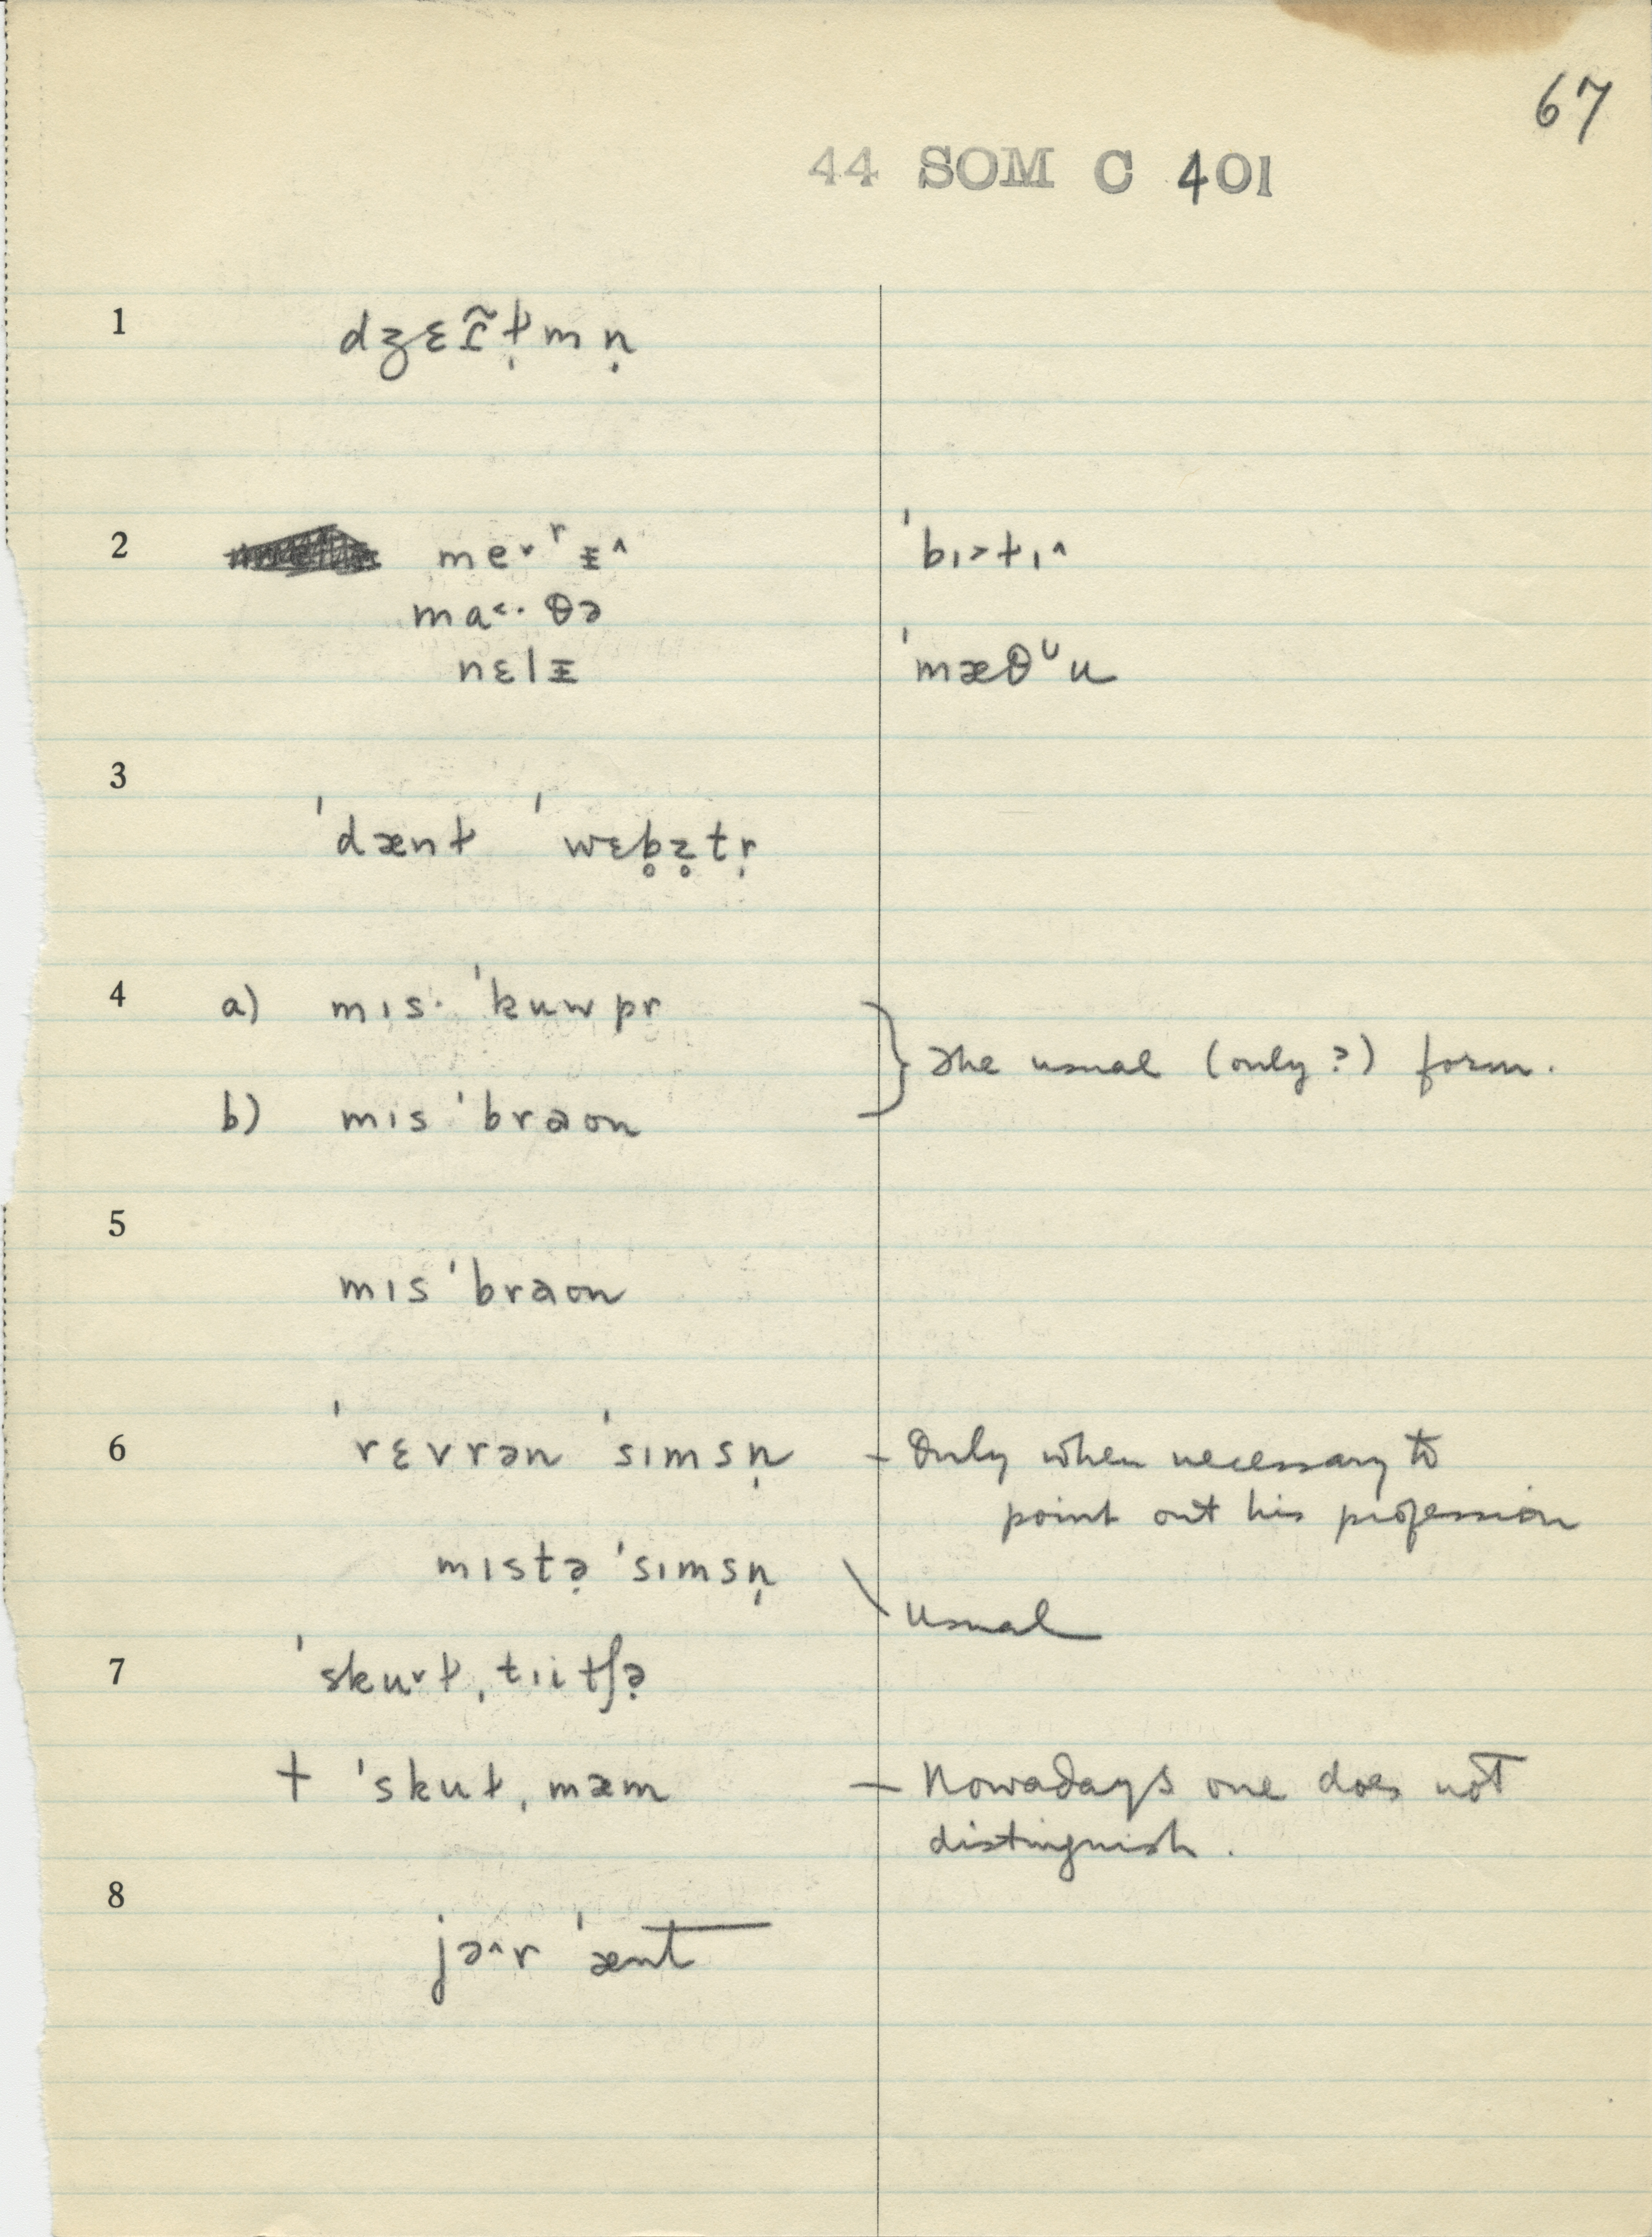 67
44 SOM C 401
1 dʒɛɪ̃t̬̩mn̩
2 me˅ʳᵻ˄ ˈbɪ˃t̬ɪ˄
ma˂·θə
nɛlᵻ ˈmæθᶸu
3
ˈdænt̬ ˈwɛb̥z̥tr̩
4 a) mɪs· ˈkuwpr
} The usual (only?) form.
b) mɪs ˈbraon
5
mɪs ˈbraon
6 ˈrɛvrən ˈsɪmsn̩ – Only when necessary to
point out his profession
mɪstə̣ ˈsɪmsn̩
usual
7 ˈskʊ˅t̬, tɪitʃə̣
† ˈskut̬, mæm – Nowadays one does not
distinguish.
8
jə˄r ˈænt